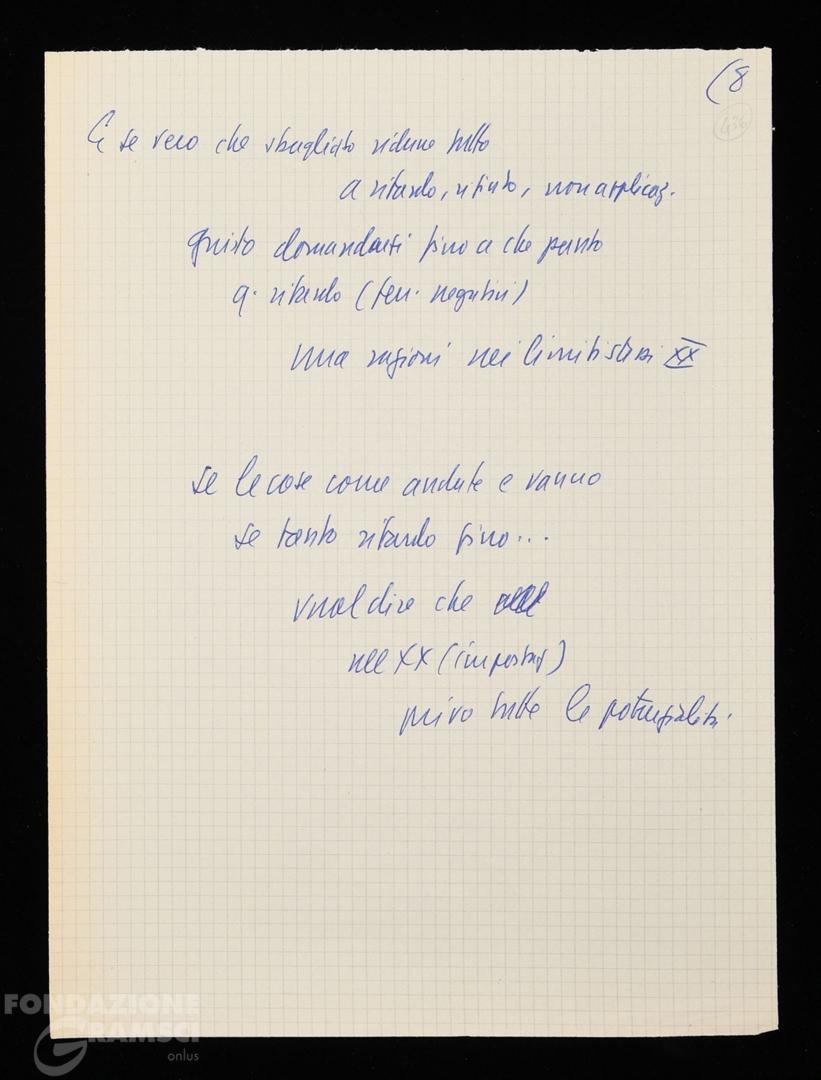 (8
434
E se vero che sbagliato ridurre tutto
a ritardo, rifiuto, non applicaz.
giusto domandarsi fino a che punto
q. ritardo (fen. negativi)
una ragioni nei limiti stessi XX
se le cose come andate e vanno
se tanto ritardo fino...
vuol dire che
nel XX (impostaz)
privo tutte le potenzialità.
FONDAZIONE
GRAMSCI
onlus